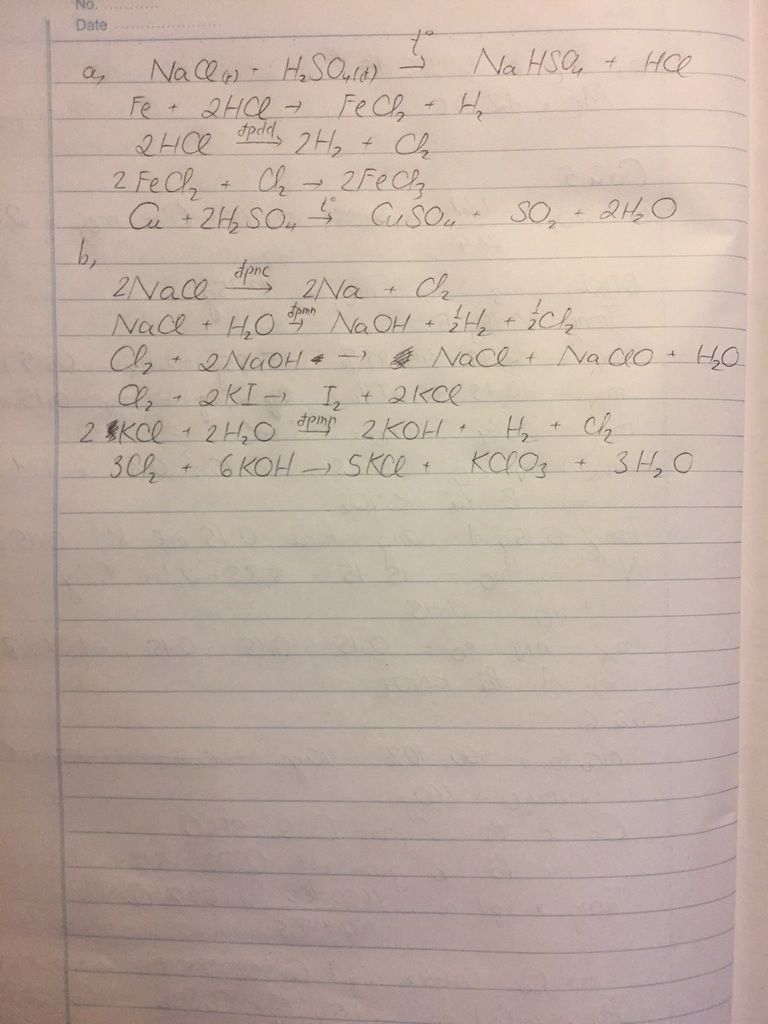 No. ............
Date ..........................
a, NaCl(r) + H₂SO₄(đ) t°→ NaHSO₄ + HCl
Fe + 2HCl → FeCl₂ + H₂
2HCl đpdd→ 2H₂ + Cl₂
2FeCl₂ + Cl₂ → 2FeCl₃
Cu + 2H₂SO₄ t°→ CuSO₄ + SO₂ + 2H₂O
b,
2NaCl đpnc→ 2Na + Cl₂
NaCl + H₂O đpmn→ NaOH + ½H₂ + ½Cl₂
Cl₂ + 2NaOH → NaCl + NaClO + H₂O
Cl₂ + 2KI → I₂ + 2KCl
2KCl + 2H₂O đpmn→ 2KOH + H₂ + Cl₂
3Cl₂ + 6KOH → 5KCl + KClO₃ + 3H₂O